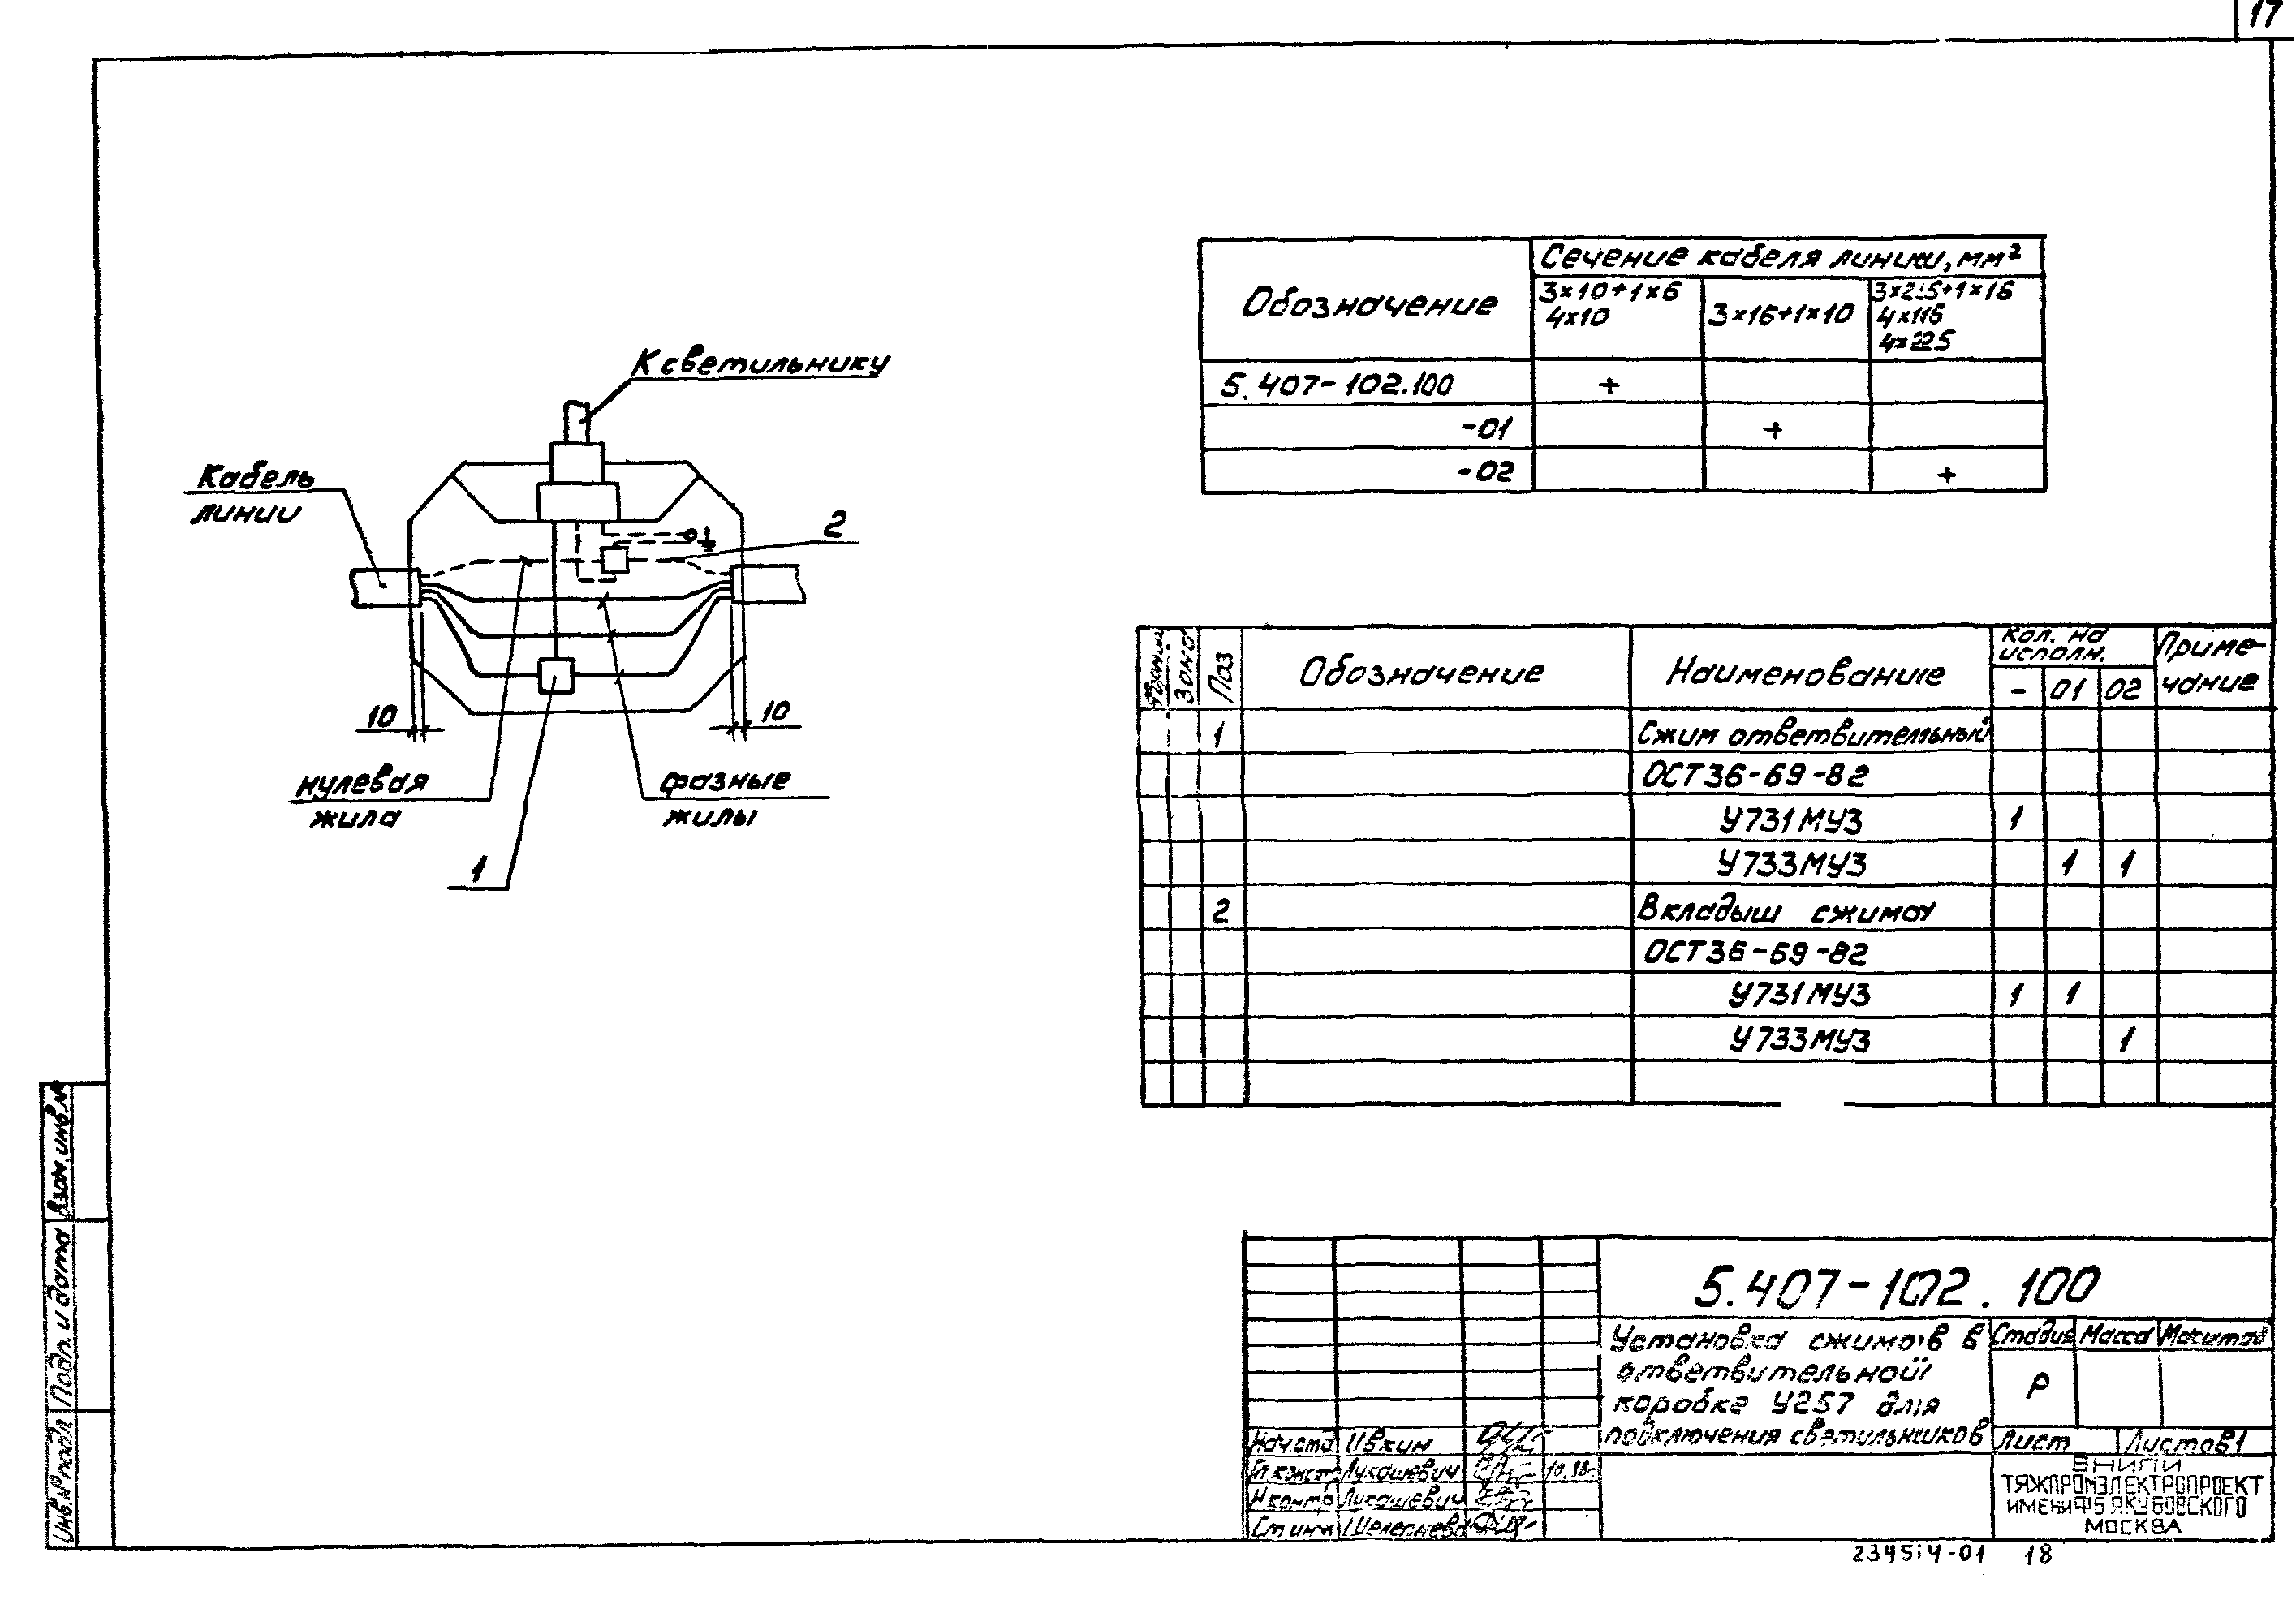 17
К светильнику
Кабель
линии
2
10
10
нулевая
жила
фазные
жилы
1
Обозначение
Сечение кабеля линии, мм²
3×10+1×6
4×10
3×16+1×10
3×25+1×16
4×16
4×25
5.407-102.100 +
-01 +
-02 +
Формат
Зона
Поз
Обозначение
Наименование
Кол. на
исполн.
- 01 02
Приме-
чание
1 Сжим ответвительный
ОСТ36-69-82
У731МУ3 1
У733МУ3 1 1
2 Вкладыш сжима
ОСТ36-69-82
У731МУ3 1 1
У733МУ3 1
Взам.инв.№
Подп. и дата
Инв.№ подл
5.407-102.100
Установка сжимов в
ответвительной
коробке У257 для
подключения светильников
Стадия Масса Масштаб
Р
Лист Листов 1
Нач.отд Ивкин
Гл констр Лукашевич 10.88
Н контр Лукашевич
Ст инж Шелепнева
ВНИПИ
ТЯЖПРОМЭЛЕКТРОПРОЕКТ
ИМЕНИ Ф Б ЯКУБОВСКОГО
МОСКВА
234514-01 18